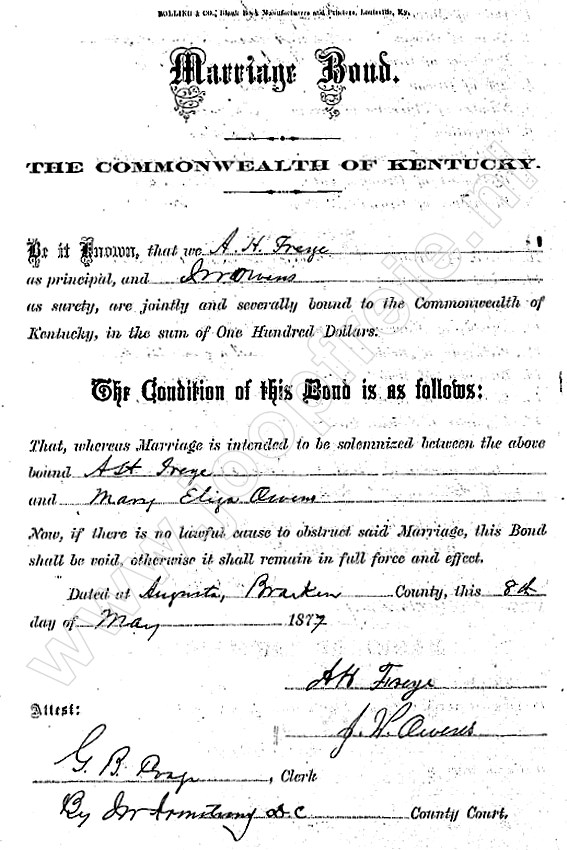 ROLLING & CO., Blank Book Manufacturers and Printers, Louisville, Ky.
Marriage Bond.
THE COMMONWEALTH OF KENTUCKY.
Be it Known, that we A. H. Freye
as principal, and J W Owens
as surety, are jointly and severally bound to the Commonwealth of
Kentucky, in the sum of One Hundred Dollars.
The Condition of this Bond is as follows:
That, whereas Marriage is intended to be solemnized between the above
bound A H Freye
and Mary Eliza Owens
Now, if there is no lawful cause to obstruct said Marriage, this Bond
shall be void, otherwise it shall remain in full force and effect.
Dated at Augusta, Bracken County, this 8th
day of May 1877
A H Freye
Attest:
J. W. Owens
G. B. , Clerk
By Jno Armstrong D. C County Court.